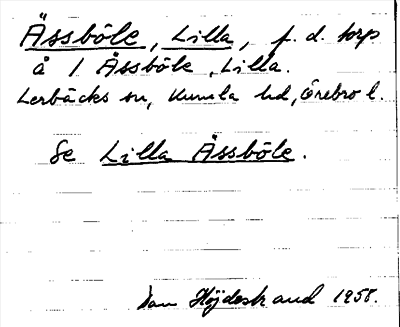 Ässböle, Lilla, f.d. torp
å 1 Åssböle, Lilla.
Lerbäcks sn, Kumla hd, Örebro l.
Se Lilla Åssböle.
Dan Höjdestrand 1958.